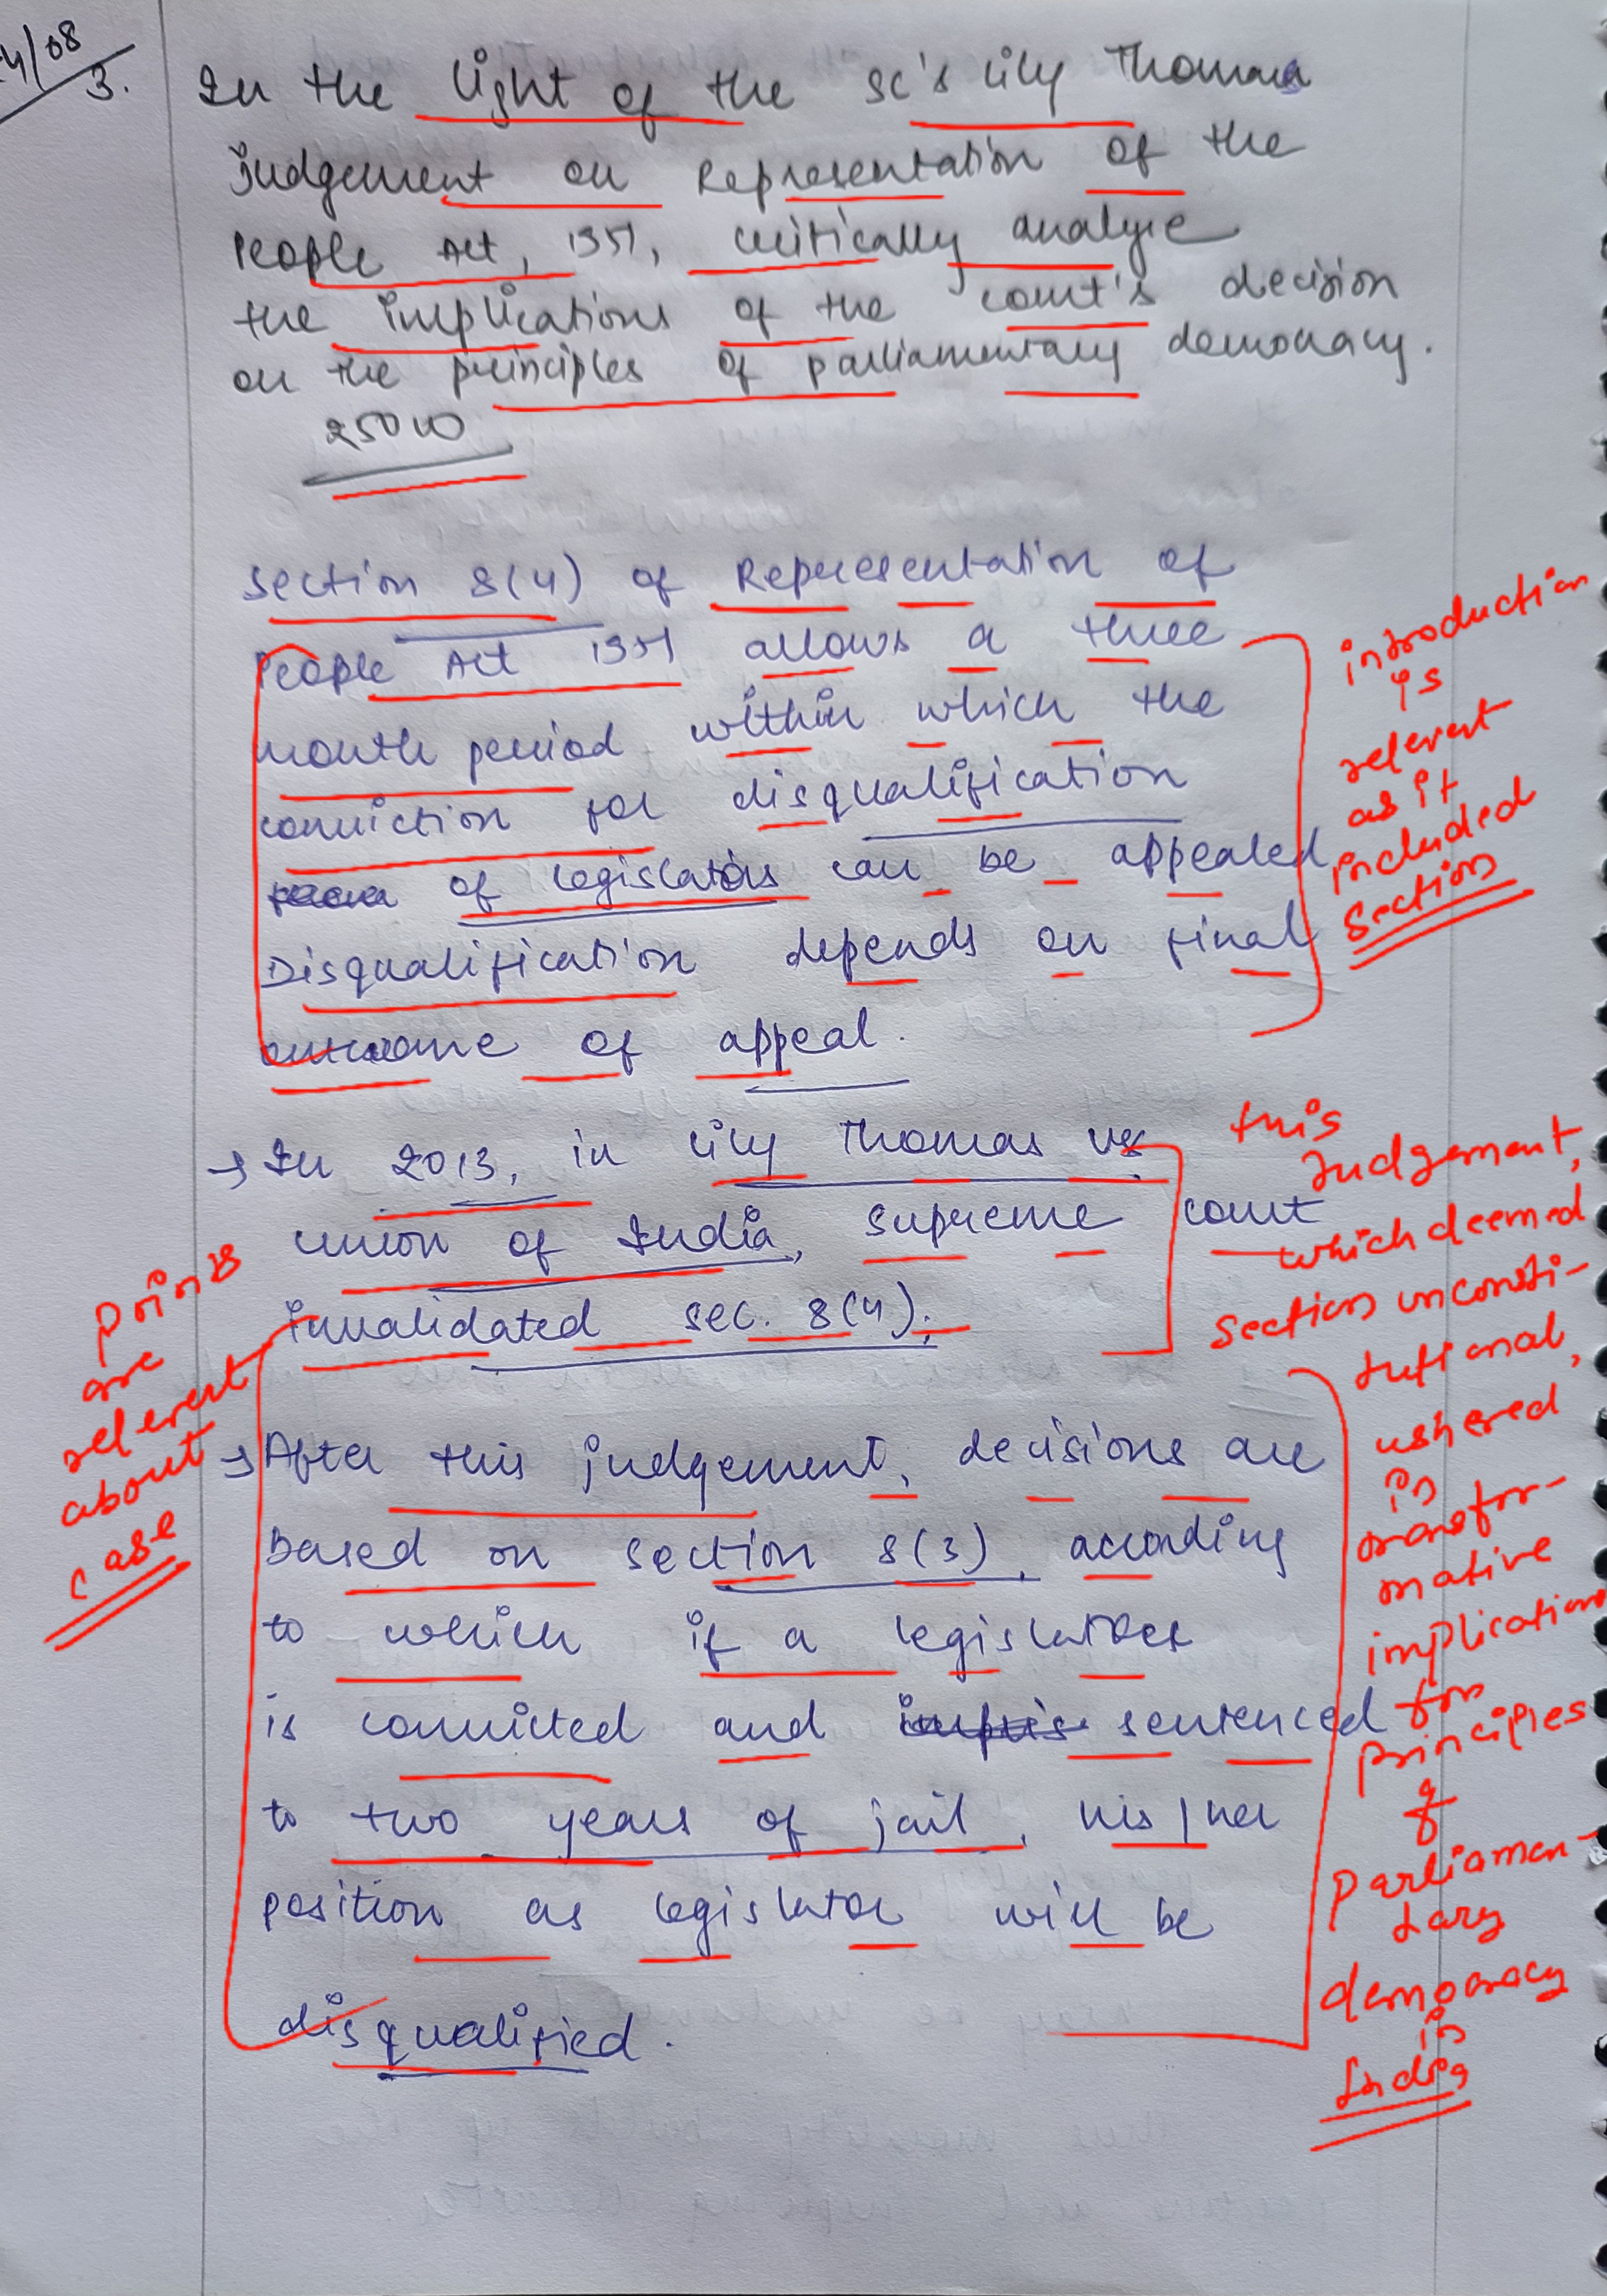 4/08
3.
In the light of the SC's Lily Thomas
judgement on Representation of the
People Act, 1951, critically analyse
the implications of the court's decision
on the principles of parliamentary democracy.
250 w
Section 8(4) of Representation of
People Act 1951 allows a three
month period within which the
conviction for disqualification
of legislators can be appealed
Disqualification depends on final
outcome of appeal.
introduction
is
relevent
as it
included
section
→ In 2013, in Lily Thomas vs
Union of India, Supreme Court
invalidated sec. 8(4).
→ After this judgement, decisions are
based on section 8(3), according
to which if a legislator
is convicted and sentenced
to two years of jail, his/her
position as legislator will be
disqualified.
points
are
relevent
about
case
this
Judgement,
which deemed
section unconsti-
tutional,
ushered
in
transfor-
mative
implications
for
principles
of
parliamen-
tary
democracy
in
India